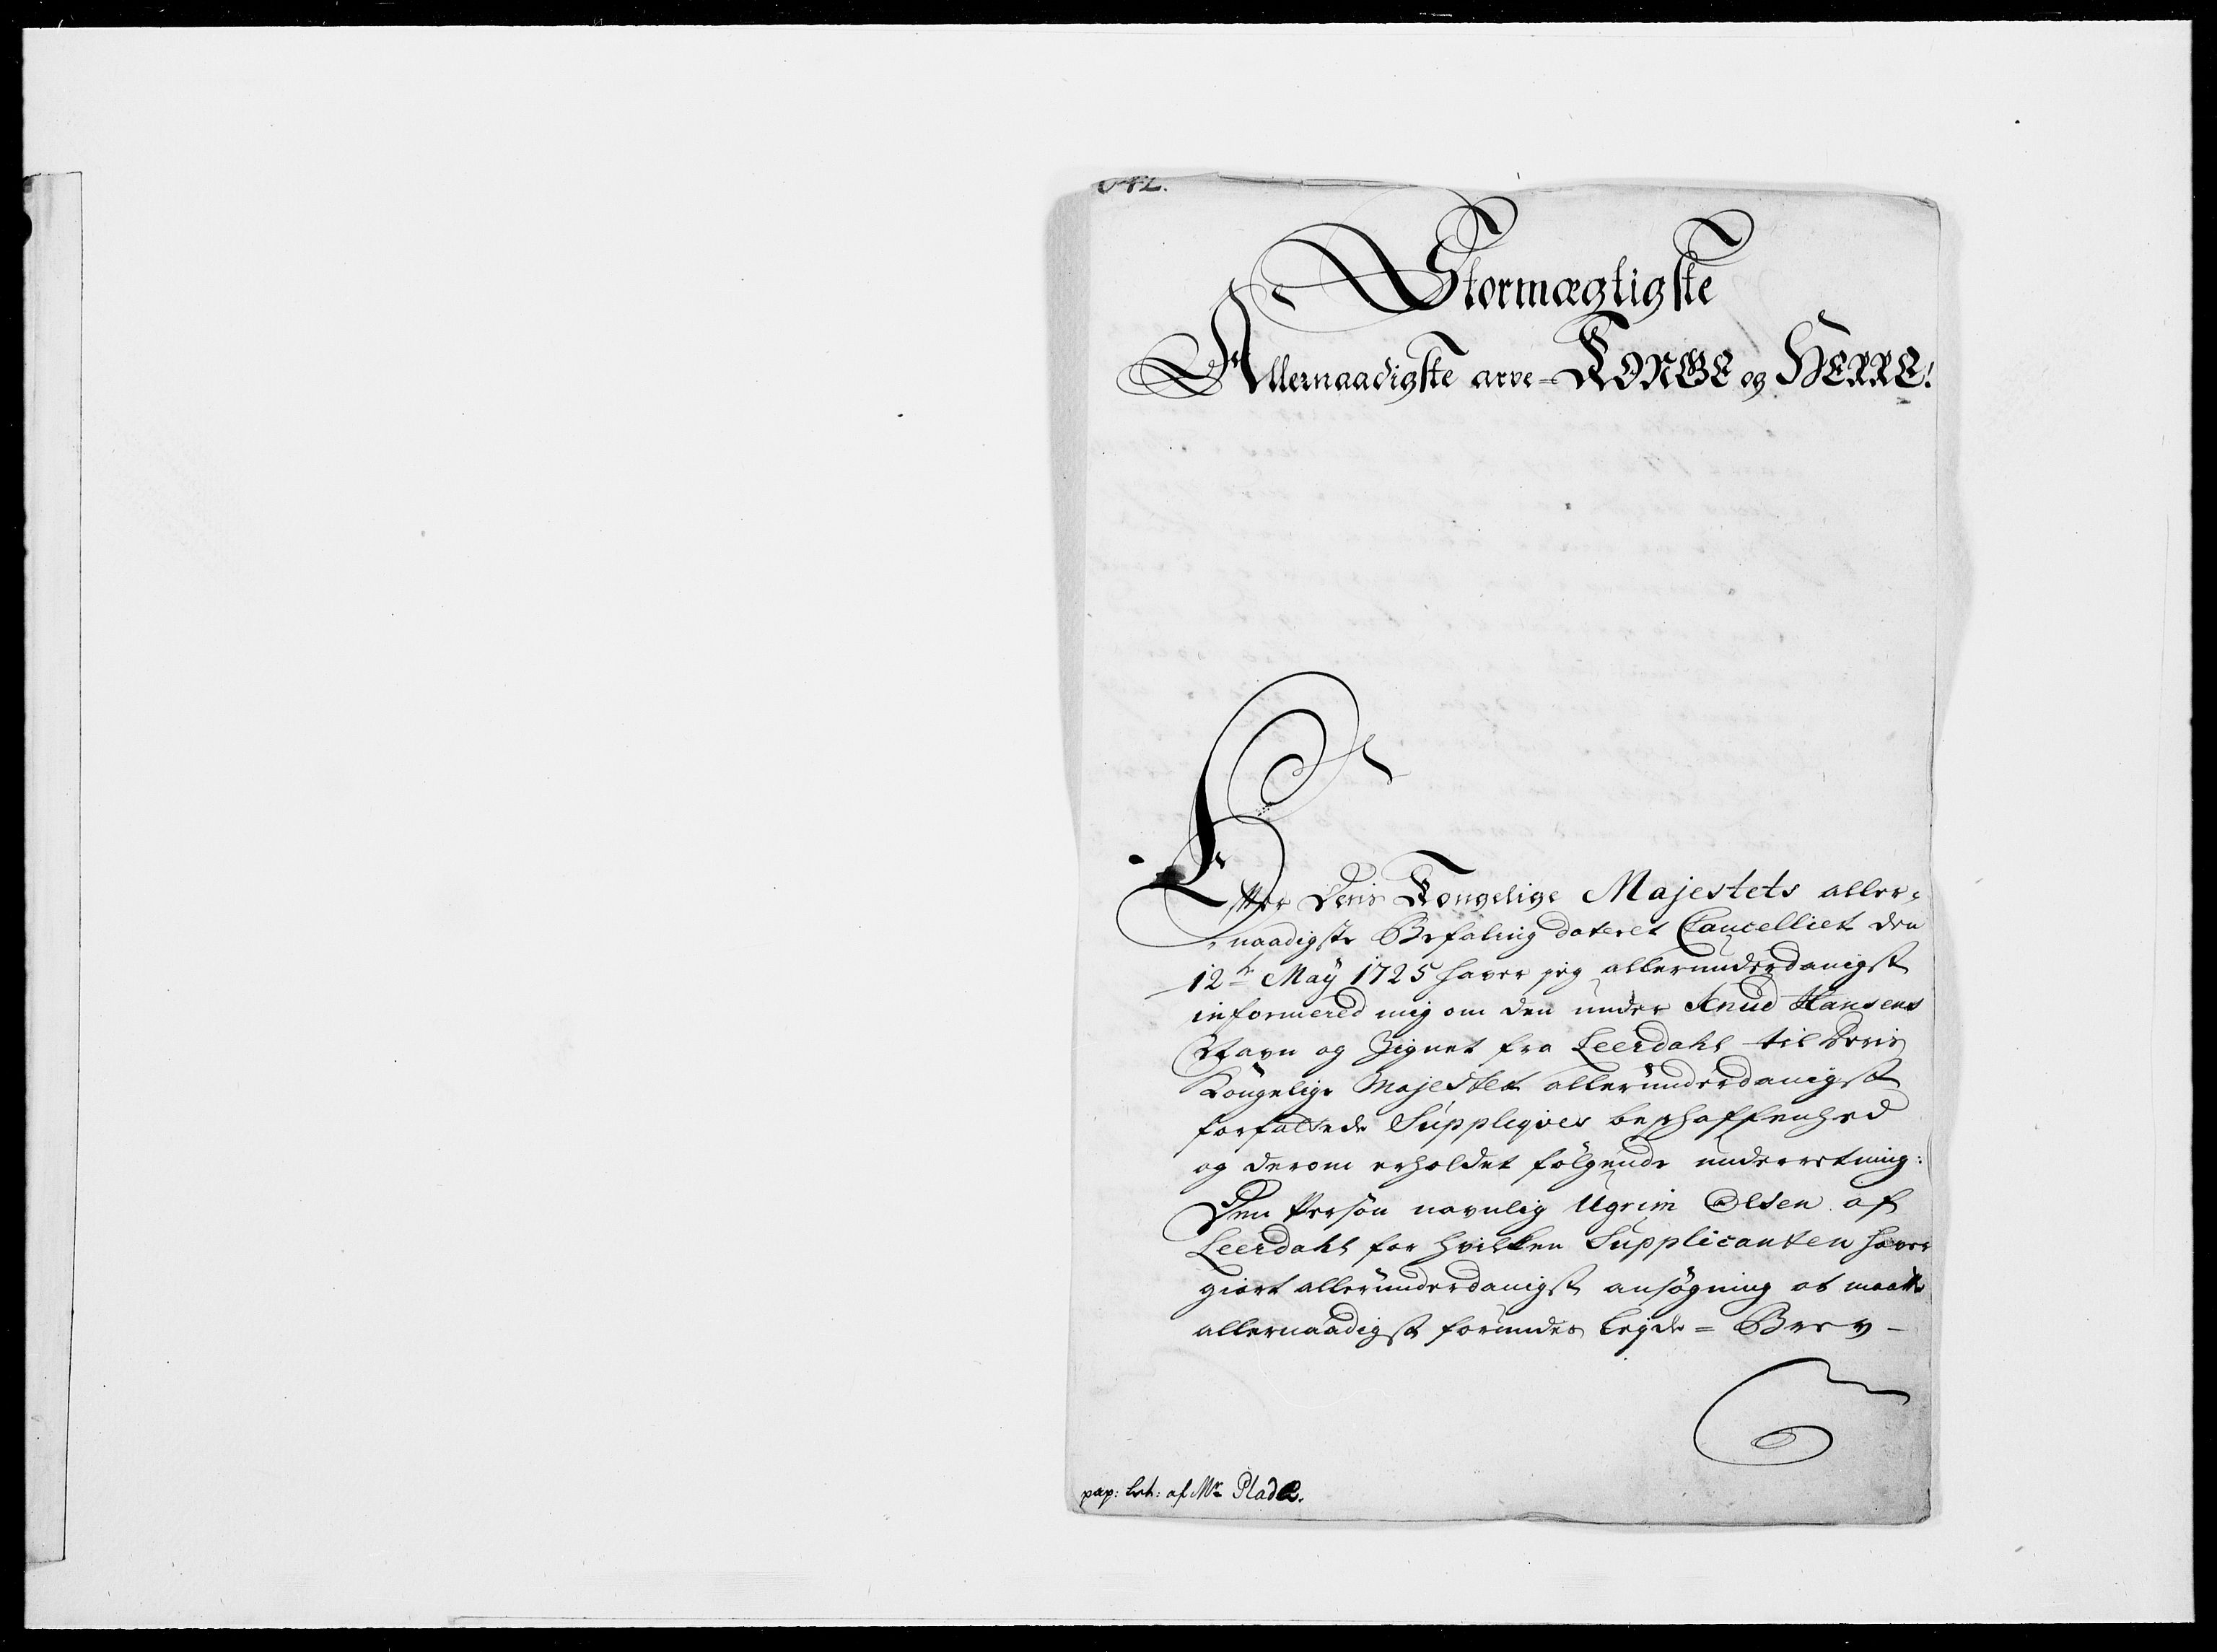 642.
Stormægtigste
Allernaadigste arve-KONGE og HERRE!
Efter Deris Kongelige Majestets aller-
naadigste Befaling dateret Cancelliet den
12te Maÿ 1725 haver jeg allerunderdanigst
informered mig om den under Knud Hansens
Nafn og Zignet fra Leerdahl til Deris
Kongelige Majestet allerunderdanigst
forfattede Suppliqves beschaffenhed
og derom erholdet følgende underretning:
Den Person navnlig Ugrim Olsen af
Leerdahl for hvilken Supplicanten haver
giort allerunderdanigst ansøgning at maatte
allernaadigst forundes Lejde=Brev-
pap: lect: af Mr Plade.